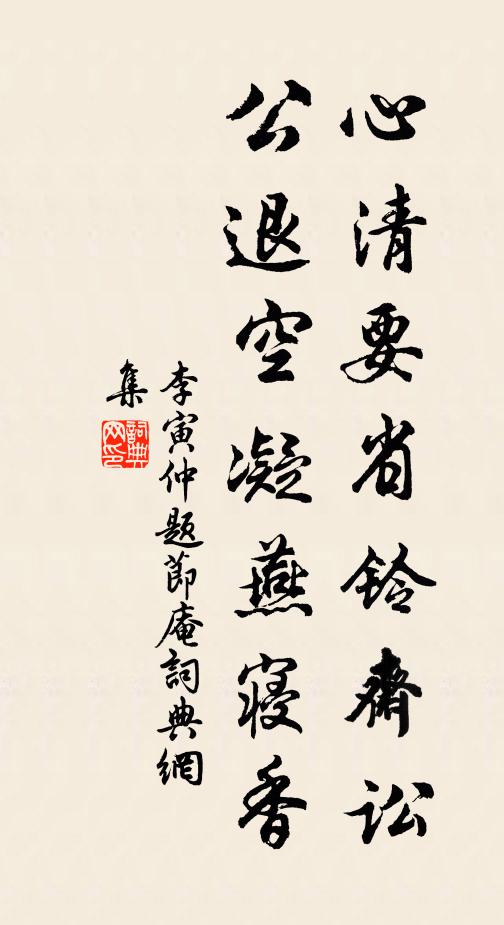 心清要省鈴齋訟
公退空凝燕寢香
李寅仲題節庵詞典網
集
詞典網印